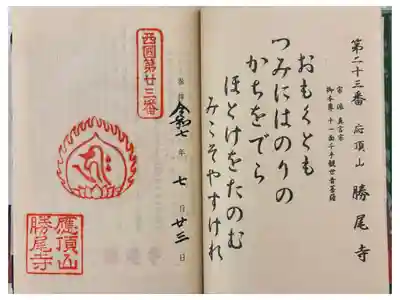 第二十三番 応頂山 勝尾寺
宗派 真言宗
御本尊 十一面千手観世音菩薩
おもくとも
つみにはのりの
かちをでら
ほとけをたのむ
みこそやすけれ
令和七年七月廿三日
西國第廿三番
應頂山
勝尾寺